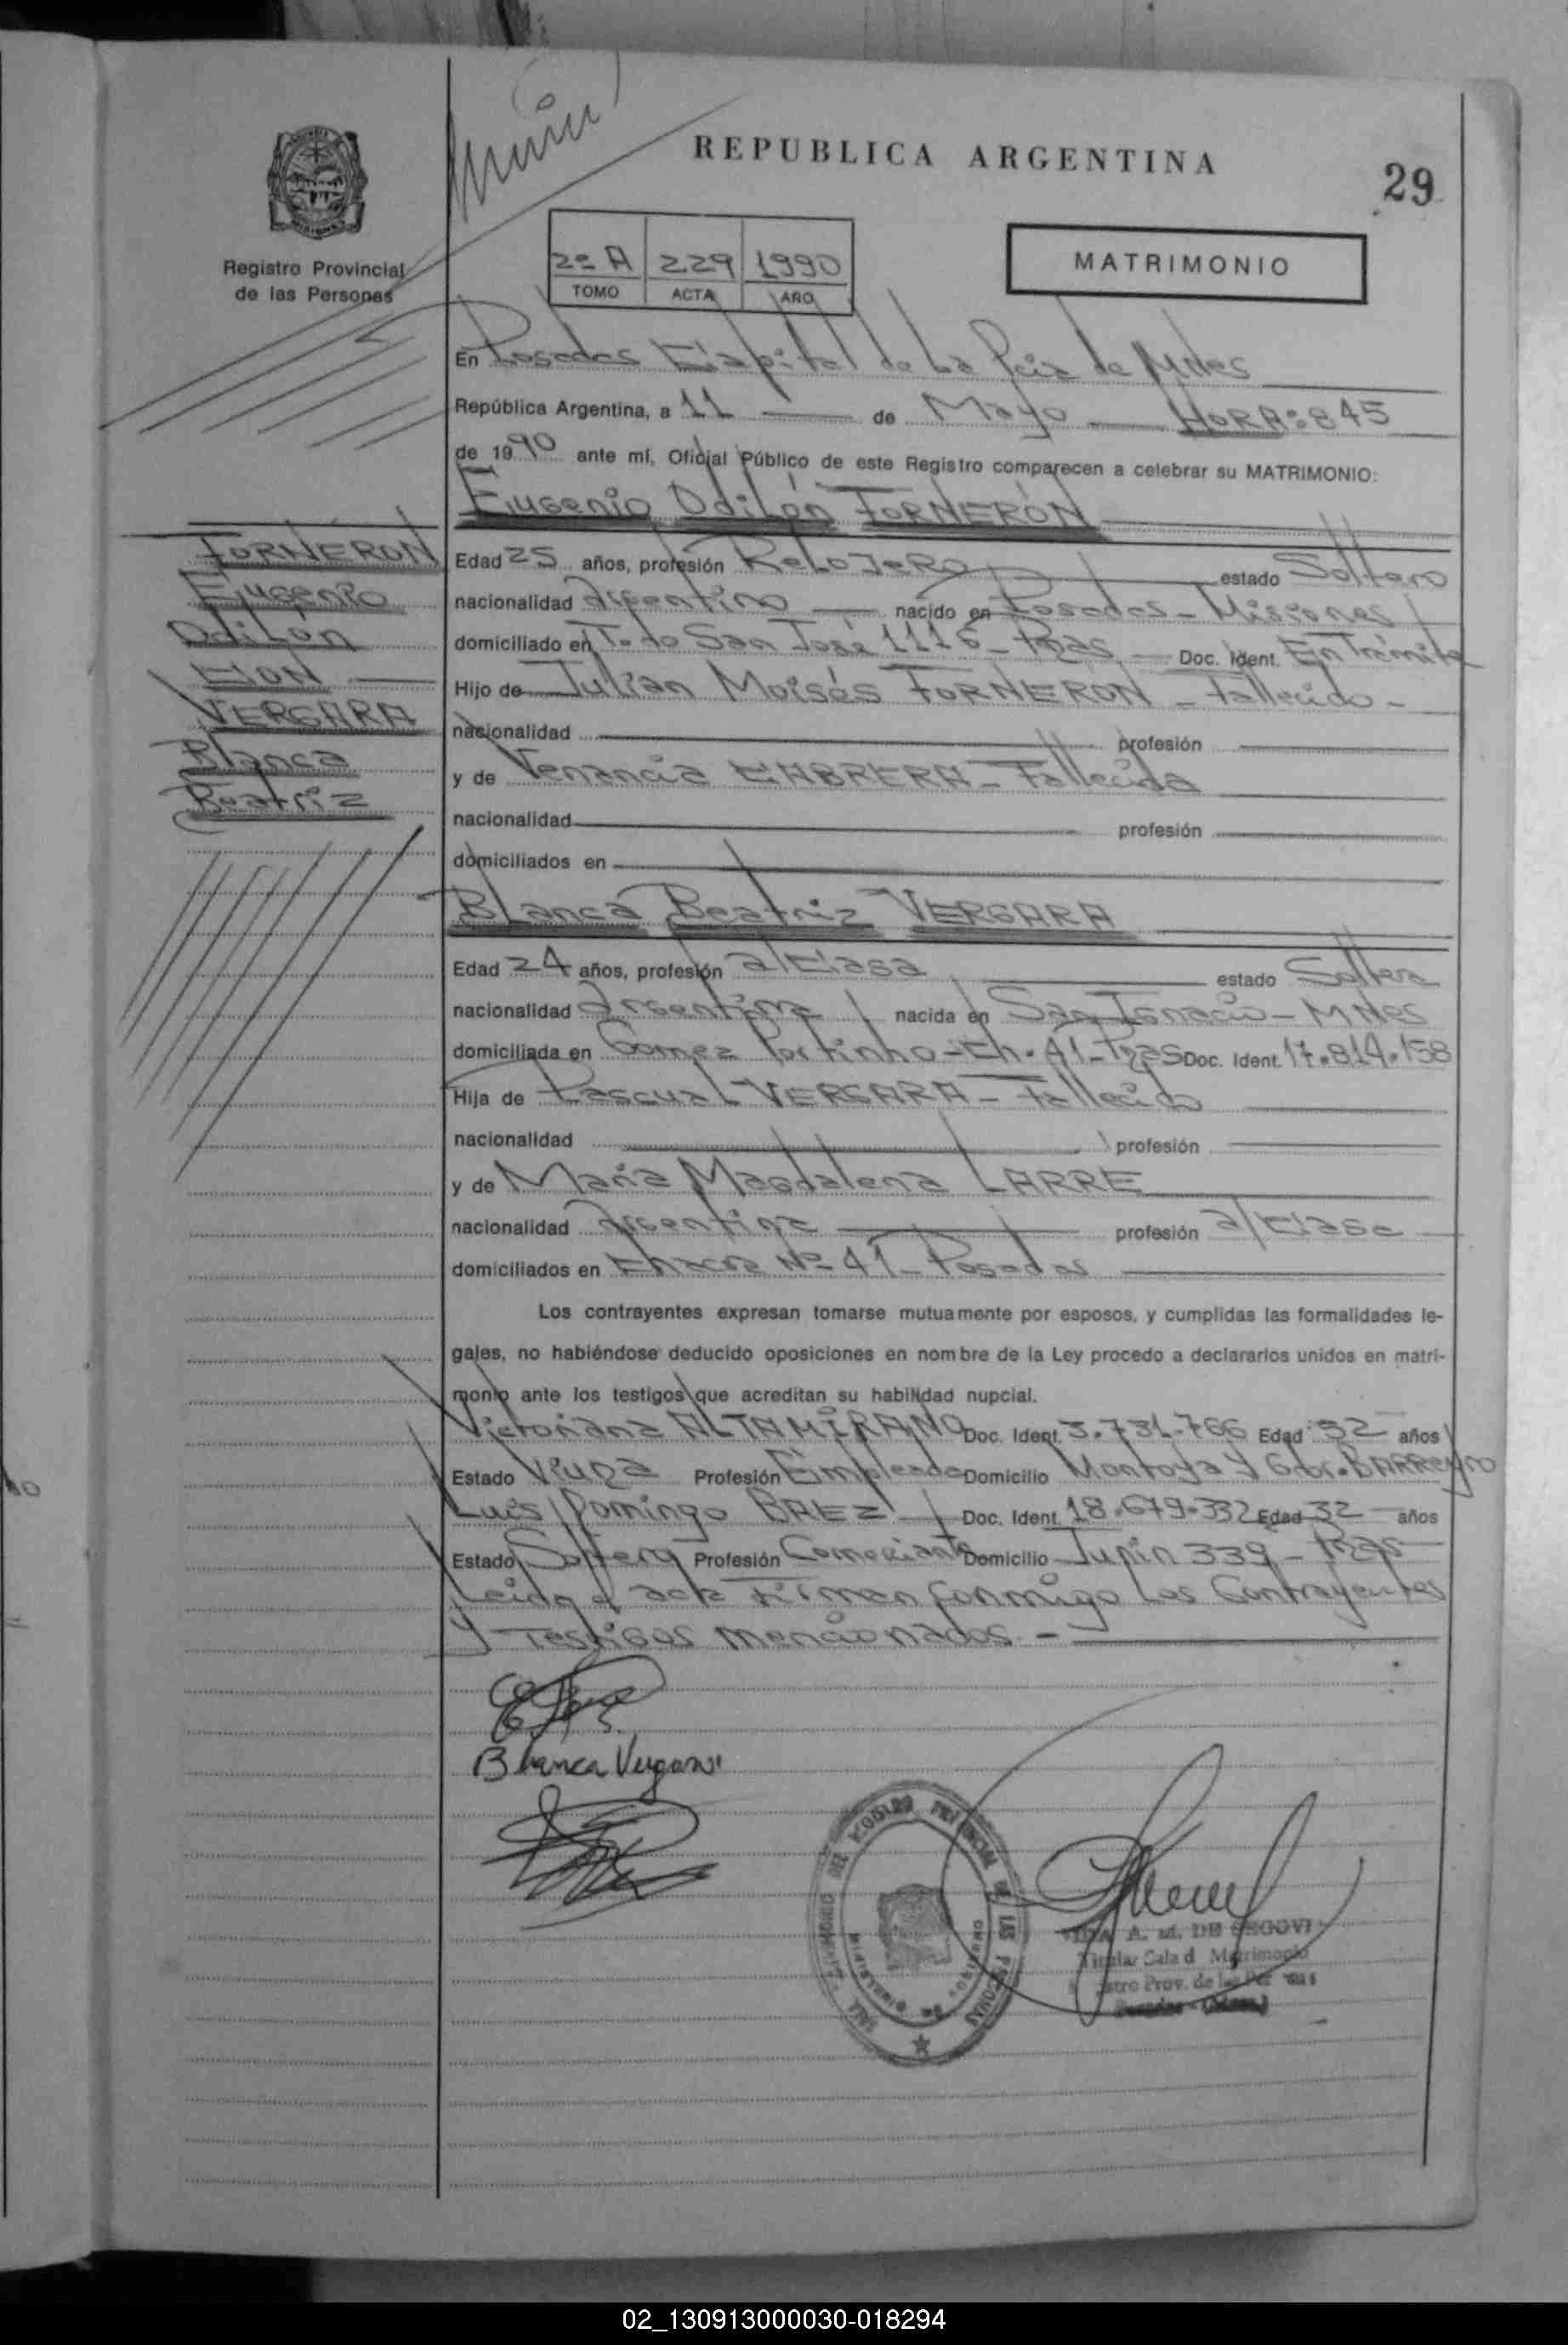 REPUBLICA ARGENTINA
29
Registro Provincial
de las Personas
2º A 229 1990
TOMO ACTA AÑO
MATRIMONIO
En Posadas Capital de La Pcia de Mnes
República Argentina, a 11 de Mayo HORA: 845
de 1990 ante mí, Oficial Público de este Registro comparecen a celebrar su MATRIMONIO:
Eugenio Odilón FORNERÓN
FORNERON
Eugenio
Odilón
CON
VERGARA
Blanca
Beatriz
Edad 25 años, profesión Relojero estado Soltero
nacionalidad Argentino nacido en Posadas - Misiones
domiciliado en T. de San José 1116 - Pdas Doc. Ident. En Trámite
Hijo de Julian Moisés FORNERON - Fallecido -
nacionalidad profesión
y de Venancia CABRERA - Fallecida
nacionalidad profesión
domiciliados en
Blanca Beatriz VERGARA
Edad 24 años, profesión a/casa estado Soltera
nacionalidad Argentina nacida en San Ignacio - Mnes
domiciliada en Gomez Portinho - Ch. 41 - Pdas Doc. Ident. 17.814.158
Hija de Pascual VERGARA - Fallecido
nacionalidad profesión
y de María Magdalena LARRE
nacionalidad Argentina profesión a/casa
domiciliados en Chacra Nº 41 - Posadas
Los contrayentes expresan tomarse mutuamente por esposos, y cumplidas las formalidades le-
gales, no habiéndose deducido oposiciones en nombre de la Ley procedo a declararlos unidos en matri-
monio ante los testigos que acreditan su habilidad nupcial.
Victoriana ALTAMIRANO Doc. Ident. 3.731.766 Edad 52 años
Estado Viuda Profesión Empleada Domicilio Montoya y Gdor. BARREyro
Luis Domingo BAEZ Doc. Ident. 18.679.332 Edad 32 años
Estado Soltero Profesión Comerciante Domicilio Junin 339 - Pdas
Leida el acta Firman Conmigo Los Contrayentes
y Testigos mencionados. -
Blanca Vergara
A. M. DE SEGOVI
Titular Sala d Matrimonio
Prov. de las Per
02_130913000030-018294